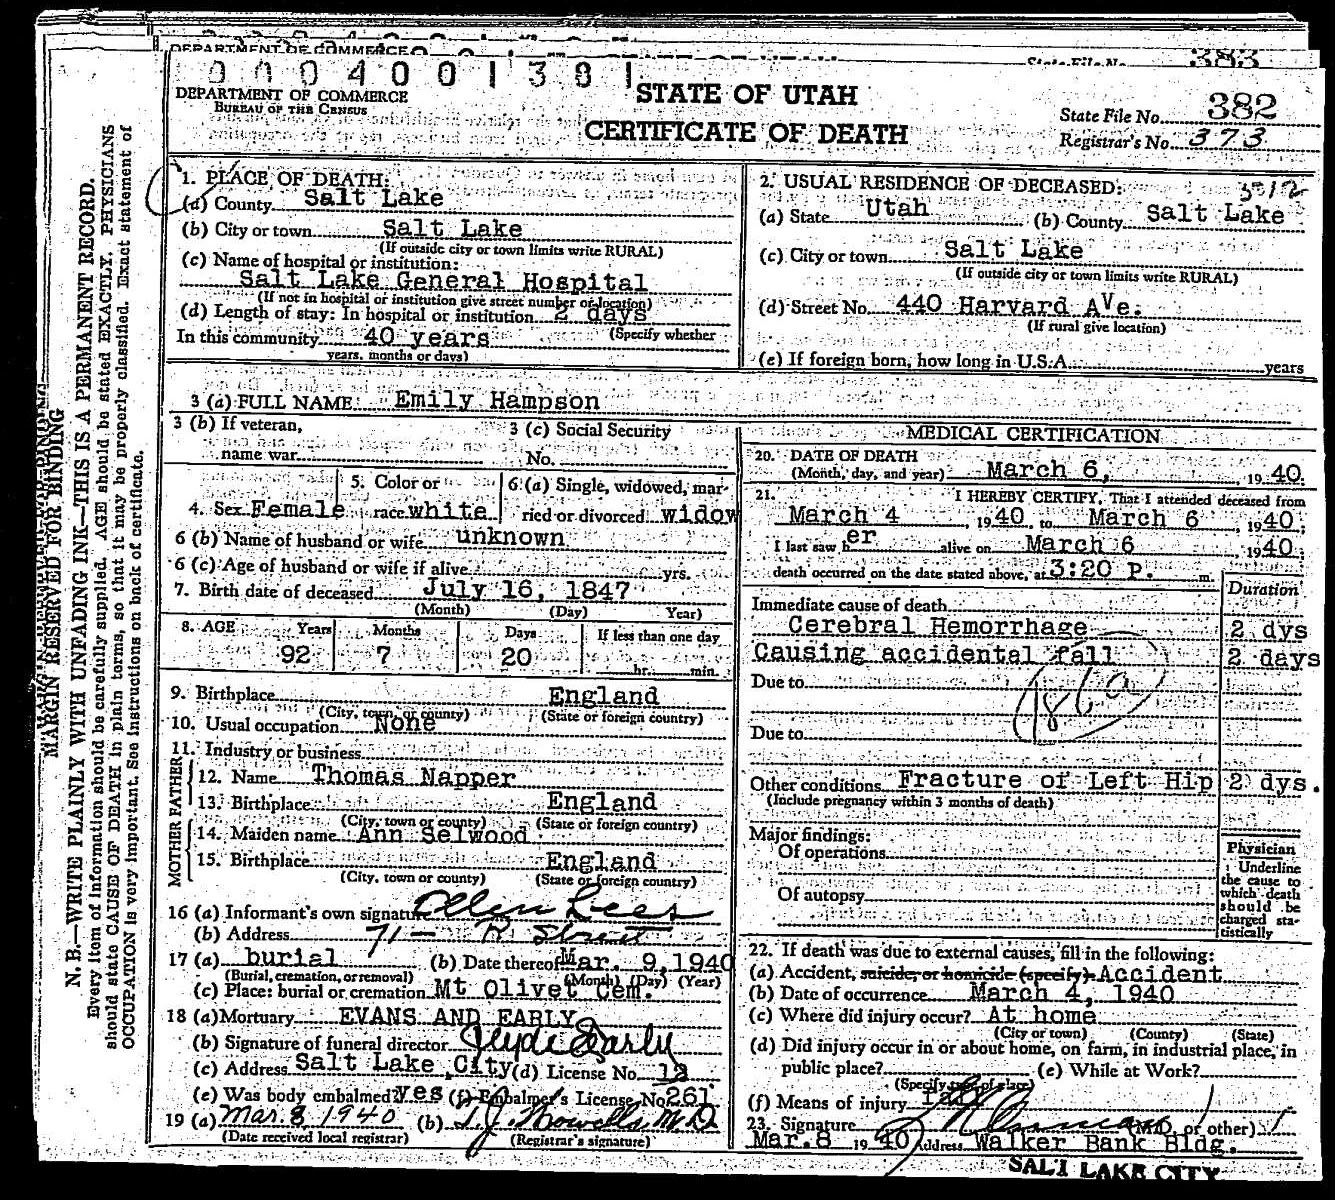 DEPARTMENT OF COMMERCE
State File No. 383
0 0 0 4 0 0 1 3 8 1
DEPARTMENT OF COMMERCE
BUREAU OF THE CENSUS
STATE OF UTAH
CERTIFICATE OF DEATH
State File No. 382
Registrar's No. 373
MARGIN RESERVED FOR BINDING
N. B.—WRITE PLAINLY WITH UNFADING INK—THIS IS A PERMANENT RECORD.
Every item of information should be carefully supplied. AGE should be stated EXACTLY. PHYSICIANS
should state CAUSE OF DEATH in plain terms, so that it may be properly classified. Exact statement of
OCCUPATION is very important. See instructions on back of certificate.
1. PLACE OF DEATH:
(a) County Salt Lake
(b) City or town Salt Lake
(If outside city or town limits write RURAL)
(c) Name of hospital or institution:
Salt Lake General Hospital
(If not in hospital or institution give street number or location)
(d) Length of stay: In hospital or institution 2 days
(Specify whether
In this community 40 years
years, months or days)
2. USUAL RESIDENCE OF DECEASED:
(a) State Utah (b) County Salt Lake
(c) City or town Salt Lake
(If outside city or town limits write RURAL)
(d) Street No. 440 Harvard Ave.
(If rural give location)
(e) If foreign born, how long in U.S.A. years
3 (a) FULL NAME Emily Hampson
3 (b) If veteran,
name war
3 (c) Social Security
No.
4. Sex Female
5. Color or
race white
6 (a) Single, widowed, mar-
ried or divorced widow
6 (b) Name of husband or wife unknown
6 (c) Age of husband or wife if alive yrs.
7. Birth date of deceased July 16, 1847
(Month) (Day) Year)
8. AGE Years Months Days If less than one day
92 7 20 hr. min.
9. Birthplace England
(City, town, or county) (State or foreign country)
10. Usual occupation None
11. Industry or business
FATHER
12. Name Thomas Napper
13. Birthplace England
(City, town or county) (State or foreign country)
MOTHER
14. Maiden name Ann Selwood
15. Birthplace England
(City, town or county) (State or foreign country)
16 (a) Informant's own signature Ellen Lees
(b) Address 71 - R Street
17 (a) burial (b) Date thereof Mar. 9, 1940
(Burial, cremation, or removal) (Month) (Day) (Year)
(c) Place: burial or cremation Mt Olivet Cem.
18 (a) Mortuary EVANS AND EARLY
(b) Signature of funeral director Clyde Early
(c) Address Salt Lake City (d) License No. 12
(e) Was body embalmed? yes (f) Embalmer's License No. 261
19 (a) Mar. 8 1940 (b) T. J. Howells, M.D.
(Date received local registrar) (Registrar's signature)
MEDICAL CERTIFICATION
20. DATE OF DEATH
(Month, day, and year) March 6, 19 40.
21. I HEREBY CERTIFY, That I attended deceased from
March 4, 1940 to March 6, 1940;
I last saw her alive on March 6 1940;
death occurred on the date stated above, at 3:20 P. m.
Duration
Immediate cause of death
Cerebral Hemorrhage 2 dys
Causing accidental fall 2 days
Due to
186 a
Due to
Other conditions Fracture of Left Hip 2 dys.
(Include pregnancy within 3 months of death)
Major findings:
Of operations
Of autopsy
Physician
Underline
the cause to
which death
should be
charged sta-
tistically
22. If death was due to external causes, fill in the following:
(a) Accident, suicide, or homicide (specify) Accident
(b) Date of occurrence March 4, 1940
(c) Where did injury occur? At home
(City or town) (County) (State)
(d) Did injury occur in or about home, on farm, in industrial place, in
public place? (e) While at Work?
(Specify type of place)
(f) Means of injury Fall
23. Signature (M.D. or other)
Mar. 8 19 40 Address Walker Bank Bldg.
SALT LAKE CITY